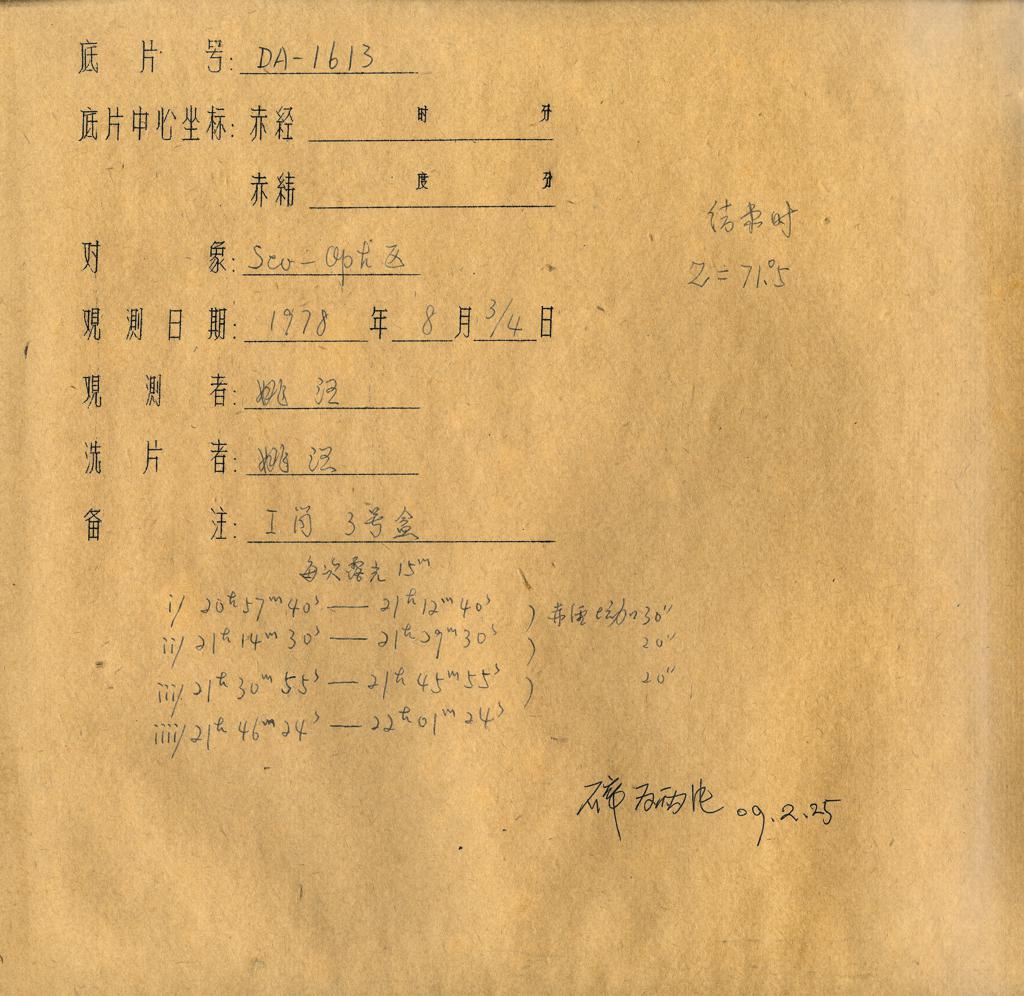 底片号: DA-1613
底片中心坐标: 赤经 时 分
赤纬 度 分
结束时
Z = 71.°5
对象: Sco-Oph区
观测日期: 1978 年 8 月 3/4 日
观测者: 姚
洗片者: 姚
备注: I 筒 3号盒
每次露光 15ᵐ
i/ 20ʰ57ᵐ40ˢ — 21ʰ12ᵐ40ˢ ) 赤 动 30"
ii/ 21ʰ14ᵐ30ˢ — 21ʰ29ᵐ30ˢ ) 20"
iii/ 21ʰ30ᵐ55ˢ — 21ʰ45ᵐ55ˢ ) 20"
iiii/ 21ʰ46ᵐ24ˢ — 22ʰ01ᵐ24ˢ
碎为两 09.2.25